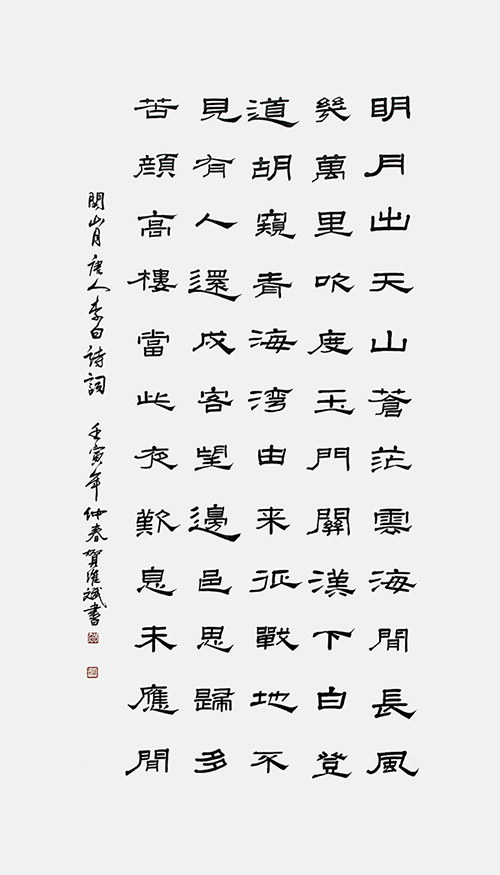 明月出天山蒼茫雲海閒長風
幾萬里吹度玉門關漢下白登
道胡窺青海灣由来征戰地不
見有人還戍客望邊邑思歸多
苦顏高樓當此夜歎息未應閒
關山月唐人李白詩詞 壬寅年仲春賀維斌書